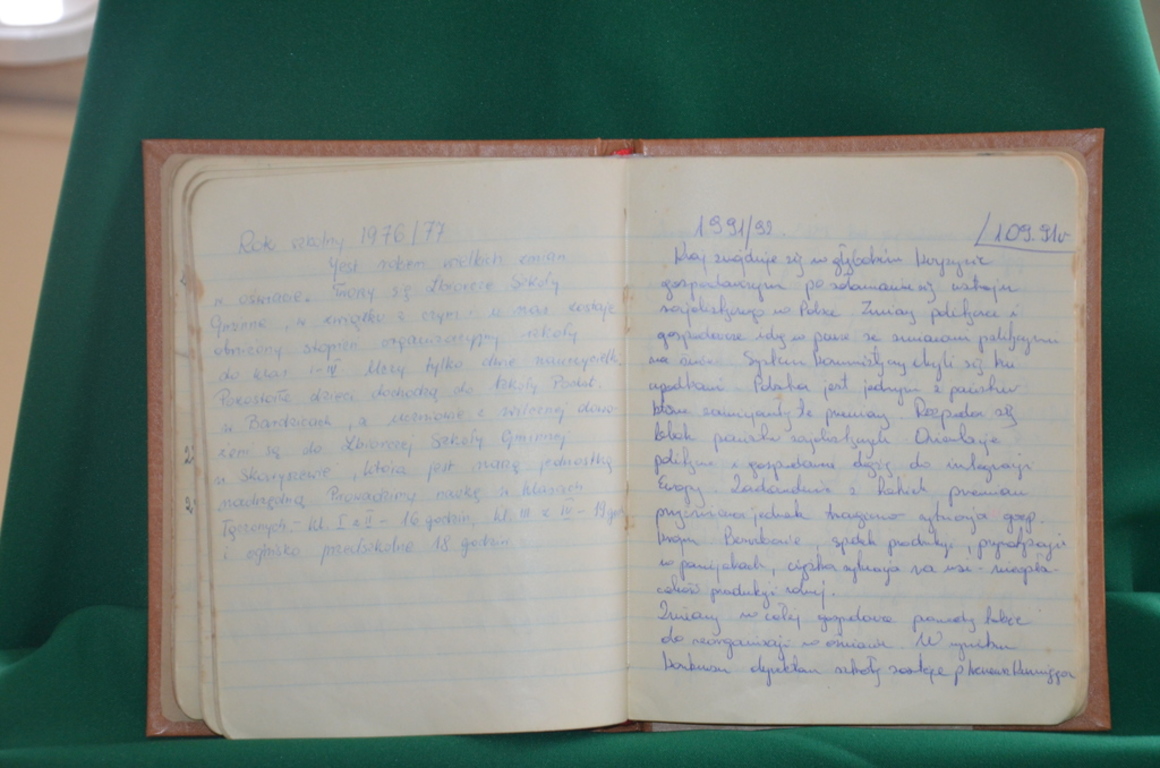 Rok szkolny 1976/77
Jest rokiem wielkich zmian
w oświacie. Tworzy się Zbiorcze Szkoły
Gminne, w związku z czym i u nas zostaje
obniżony stopień organizacyjny szkoły
do klas I-IV. Uczy tylko dwie nauczycielki.
Pozostałe dzieci dochodzą do Szkoły Podst.
w Bardzicach, a uczniowie z dowo-
żeni są do Zbiorczej Szkoły Gminnej
w Skaryszewie, która jest naszą jednostką
nadrzędną. Prowadzimy naukę w klasach
łączonych - kl. I z II - 16 godzin, kl. III z IV - 19
i ognisko przedszkolne 18 godzin.
2
3
1991/92.
1.09.91r
Kraj znajduje się w głębokim kryzysie
gospodarczym po załamaniu się ustroju
socjalistycznego w Polsce. Zmiany polityczne i
gospodarcze idą w parze ze zmianami politycznymi
na świecie. System komunistyczny chyli się ku
upadkowi. Polska jest jednym z państw
które te przemiany. Rozpada się
blok państw socjalistycznych. Orientacje
polityczne i gospodarcze dążą do integracji
Europy. Zadowolenie z takich przemian
jednak sytuacja gosp.
kraju. Bezrobocie, spadek produkcji,
ciężka sytuacja na wsi - nieopła-
calność produkcji rolnej.
Zmiany w całej gospodarce także
do reorganizacji w oświacie. W wyniku
konkursu dyrektorem szkoły zostaje p.